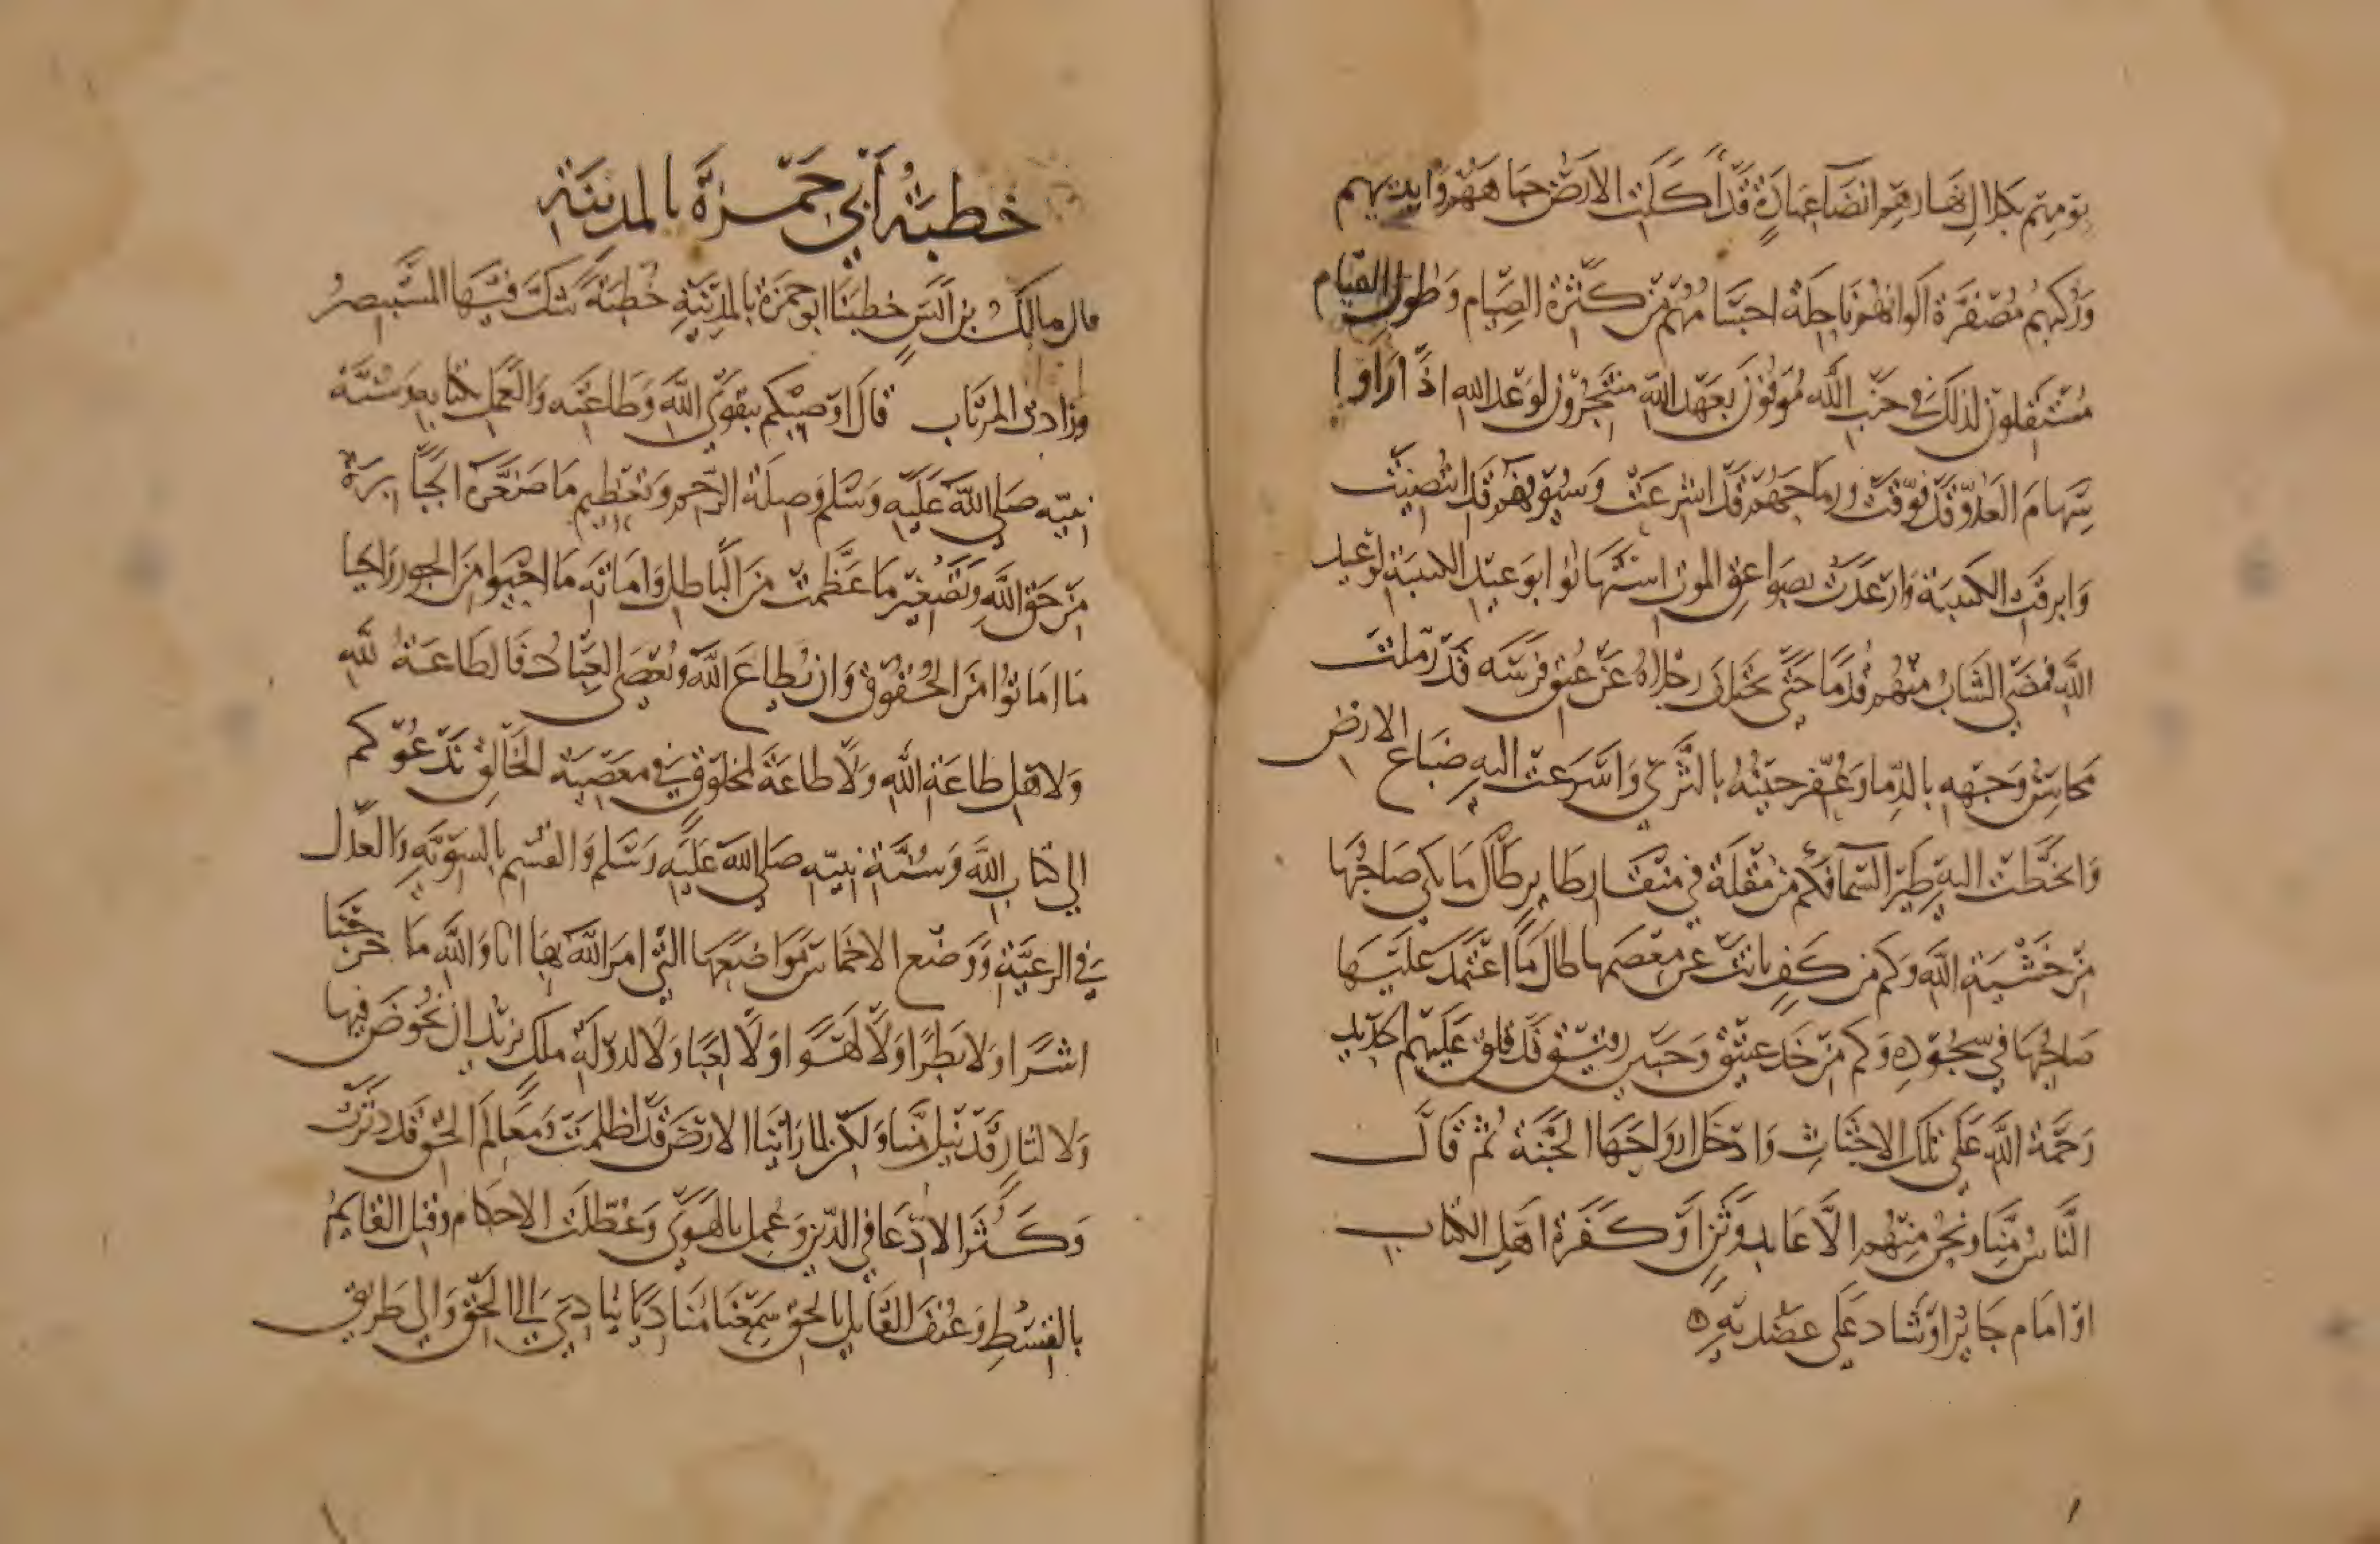 يومهم بكلال نهارهم انضا عبادة قد اكلت الارض جباههم وايديهم
وركبهم مصفرة الوانهم ناحلة اجسامهم من كثرة الصيام وطول القيام
مستقلون لذلك في جنب الله موفون بعهد الله منتجزون لوعد الله اذا راوا
سهام العدو قد فوقت ورماحهم قد اشرعت وسيوفهم قد انتضيت
وابرقت الكتيبة وارعدت بصواعق الموت استهانوا بوعيد الكتيبة لوعيد
الله فمضى الشاب منهم قدما حتى تختلف رجلاه عن عنق فرسه قد رملت
محاسن وجهه بالدما وعفر جبينه بالثرى واسرعت اليه ضباع الارض
وانحطت اليه طير السما فكم من مقلة في منقار طاير طال ما بكى صاحبها
من خشية الله وكم من كف بانت عن معصمها طال ما اعتمد عليها
صاحبها في سجوده وكم من خد عتيق وجبين رقيق قد فلق عليهم الحديد
رحمة الله على تلك الاجثاث وادخل ارواحها الجنة ثم قال
الناس منا ونحن منهم الا عابد وثن او كفرة اهل الكتاب
او امام جاير او شاد على عضديه
خطبة أبي حمزة بالمدينة
قال مالك بن انس خطبنا ابو حمزة بالمدينة خطبة شكك فيها المستبصر
وزادت المرتاب قال اوصيكم بتقوى الله وطاعته والعمل بكتابه وسنة
نبيه صلى الله عليه وسلم وصلة الرحم وتعظيم ما صغرت الجبابرة
من حق الله وتصغير ما عظمت من الباطل واماتة ما احيوا من الجور واحيا
ما اماتوا من الحقوق وان يطاع الله ويعصى العباد فالطاعة لله
ولاهل طاعة الله ولا طاعة لمخلوق في معصية الخالق ندعوكم
الى كتاب الله وسنة نبيه صلى الله عليه وسلم والقسم بالسوية والعدل
في الرعية ووضع الاخماس مواضعها التي امر الله بها انا والله ما خرجنا
اشرا ولا بطرا ولا لهوا ولا لعبا ولا لدولة ملك نريد ان نخوض فيها
ولا لثار قد نيل منا ولكن لما راينا الارض قد اظلمت ومعالم الحق قد دثرت
وكثر الادعا في الدين وعمل بالهوى وعطلت الاحكام وقتل القايم
بالقسط وعنف القايل بالحق سمعنا مناديا ينادي الى الحق والى طريق